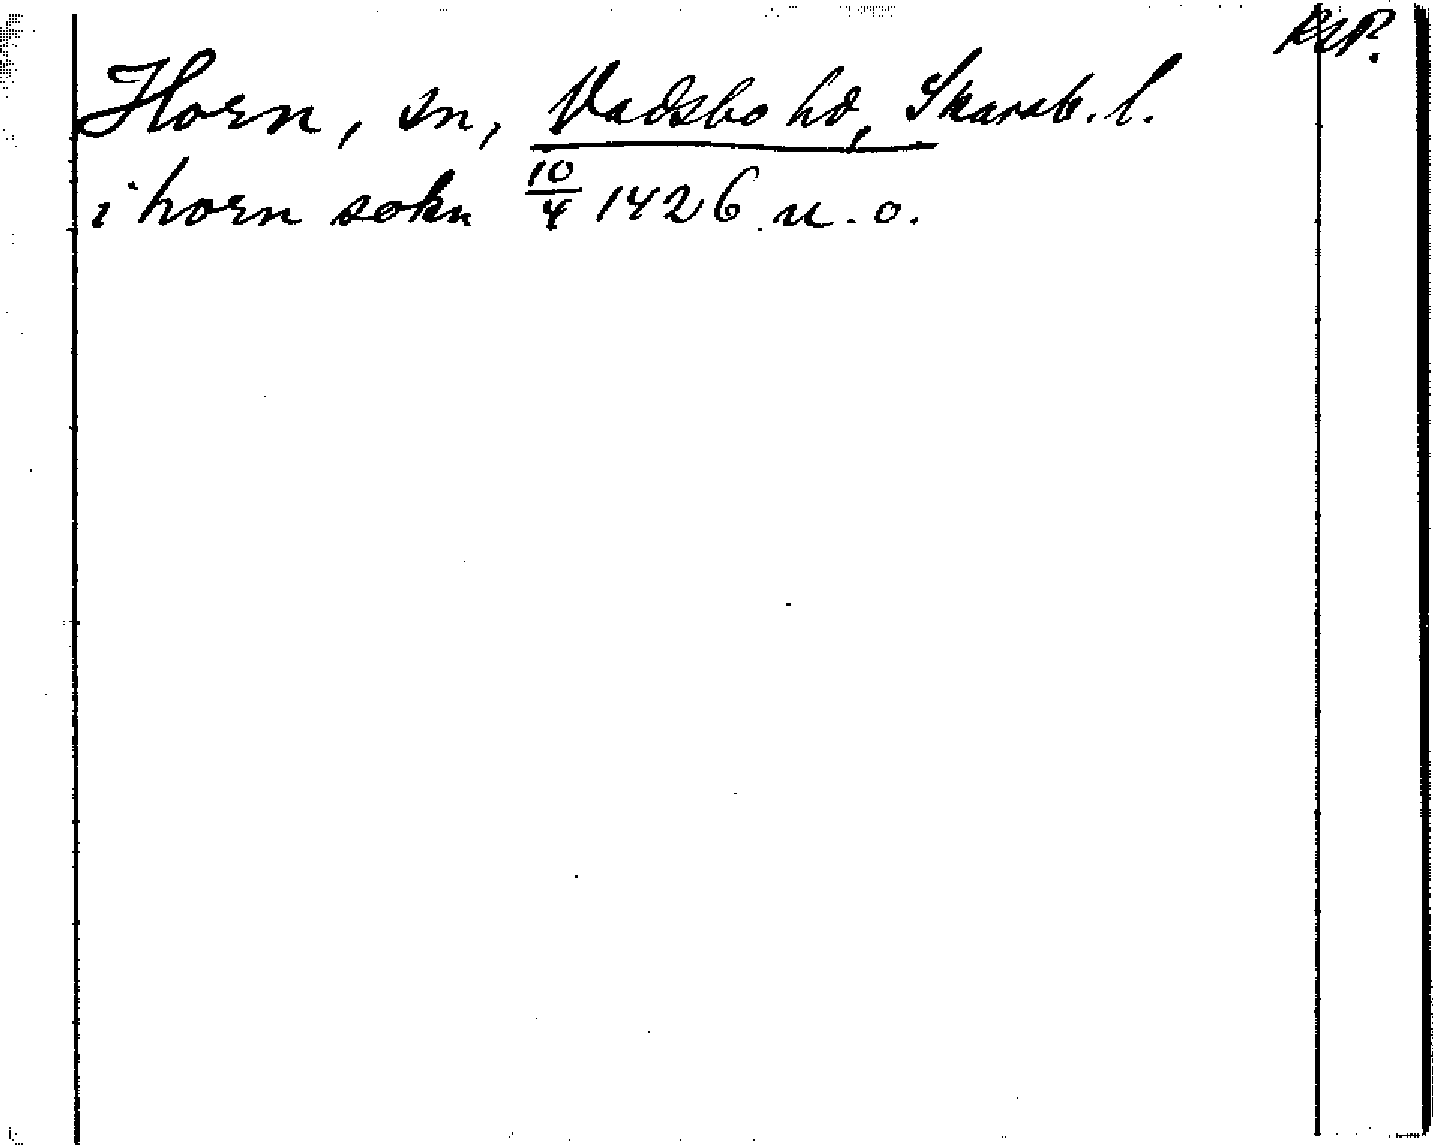 Horn, sn, Vadsbo hd, Skarab. l.
i horn sokn 10/4 1426 u. o.